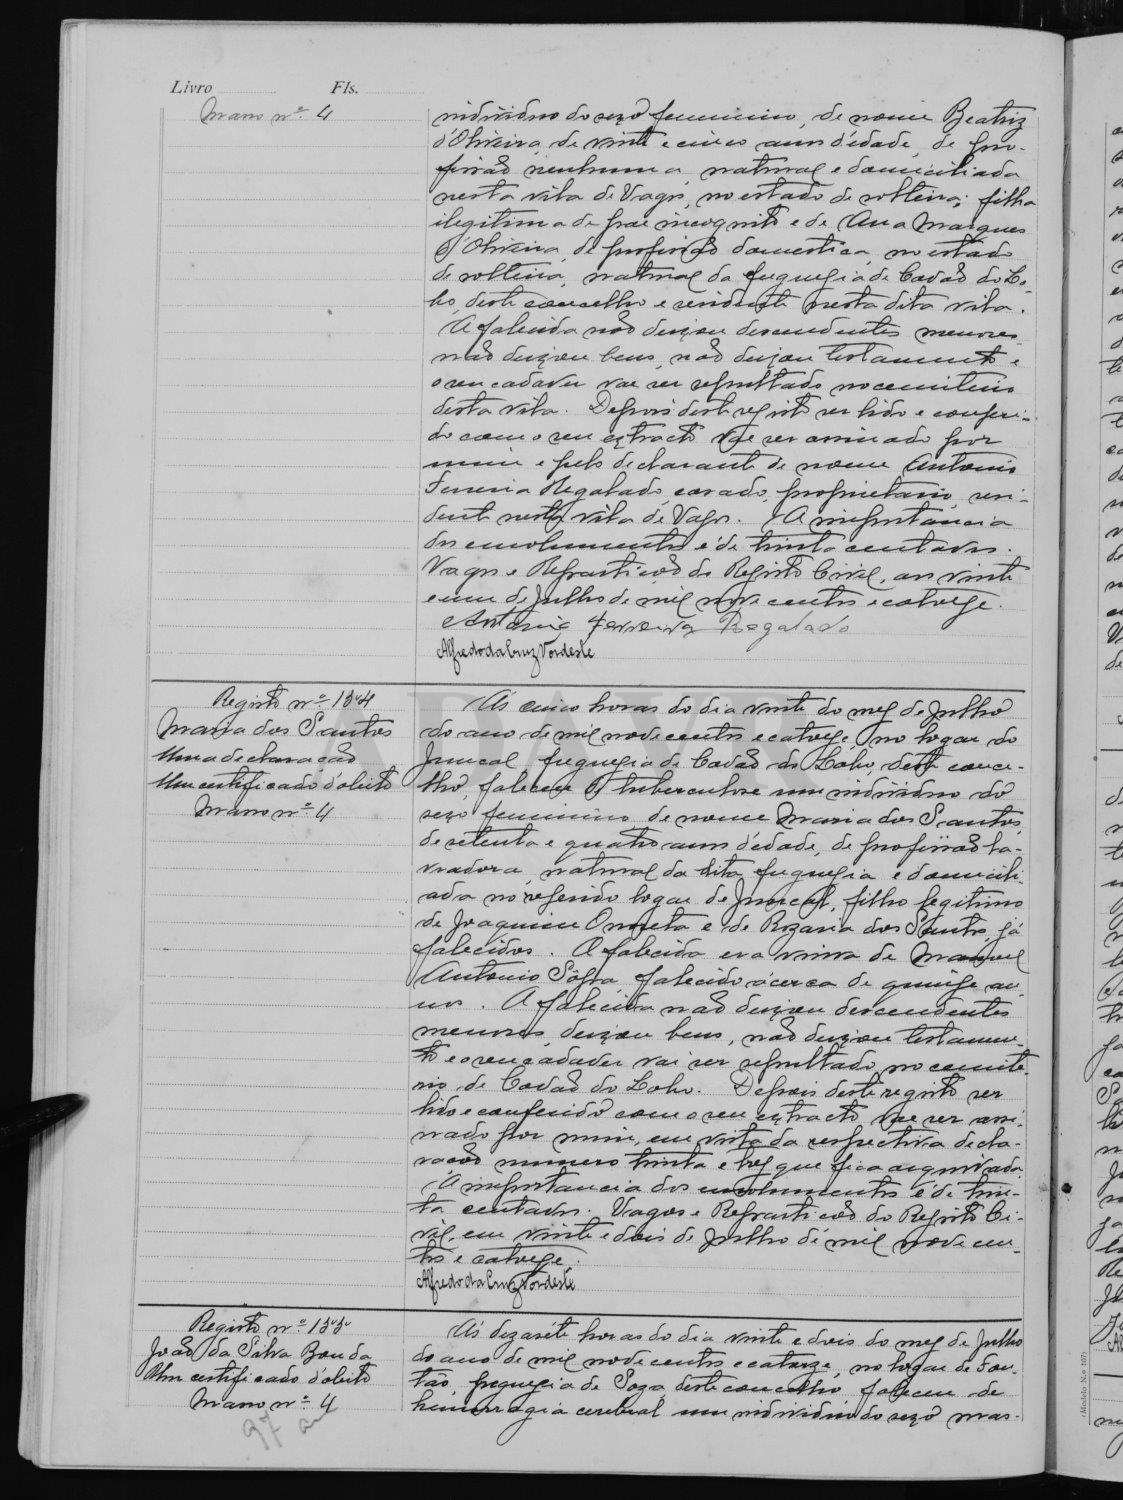 Livro Fls.
Março nº 4
individuo do sexo femenino, de nome Beatriz
d'Oliveira, de vinte e cinco anos d'edade, de pro-
fissão nenhuma, natural e domiciliada
nesta vila de Vagos, no estado de solteira; filha
ilegitima de pae incognito e de Ana Marques
d'Oliveira, de profissão domestica, no estado
de solteira, natural da freguesia de Covão do Lo-
bo, deste concelho e residente nesta dita vila.
A falecida não deixou descendentes menores
não deixou bens, não deixou testamento e
o seu cadaver vae ser sepultado no cemiterio
desta vila. Depois deste registo ser lido e conferi-
do com o seu extracto vae ser assinado por
mim e pelo declarante de nome Antonio
Ferreira Regalado, casado, proprietario, resi-
dente nesta vila de Vagos. A importancia
dos emolumentos é de trinta centavos.
Vagos e Repartição do Registo Civil, aos vinte
e um de Julho de mil nove centos e catorze.
Antonio Ferreira Regalado
Alfredo da Cruz Nordeste
Registo nº 134
Maria dos Santos
Uma declaração
Um certificado d'obito
Março nº 4
Ás cinco horas do dia vinte do mez de Julho
do ano de mil nove centos e catorze, no logar do
Juncal, freguesia de Covão do Lobo, deste conce-
lho, faleceu de tuberculose um individuo do
sexo femenino, de nome Maria dos Santos,
de setenta e quatro anos d'edade, de profissão la-
vradora, natural da dita freguesia e domicili-
ada no referido logar de Juncal, filho legitimo
de Joaquim e de Rozaria dos Santos, já
falecidos. A falecida era viuva de Manuel
Antonio falecido ácerca de quinze an-
nos. A falecida não deixou descendentes
menores, deixou bens, não deixou testamen-
to e o seu cadaver vai ser sepultado no cemite-
rio de Covão do Lobo. Depois deste registo ser
lido e conferido com o seu extracto vae ser assi-
nado por mim, em vista da respectiva decla-
ração numero trinta e trez que fica arquivada
A importancia dos emolumentos é de trin-
ta centavos. Vagos e Repartição do Registo Ci-
vil, em vinte e dois de Julho de mil nove cen-
tos e catorze.
Alfredo da Cruz Nordeste
Registo nº 135
João da Silva Bonda
Um certificado d'obito
Março nº 4
97
Ás dezasete horas do dia vinte e dois do mez de Julho
do ano de mil nove centos e catorze, no logar de Fon-
tão, freguesia de Soza deste concelho, faleceu de
hemorragia cerebral um individuo do sexo mas-
(Modelo N.º 107)